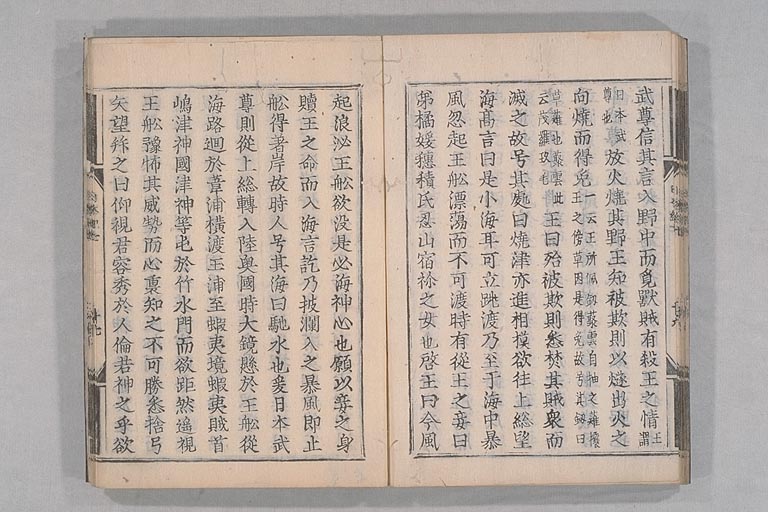 武尊信其言入野中而覓獸賊有殺王之情王謂
日本武尊也放火燒其野王知被欺則以燧出火之
向燒而得免一云王所佩劔藂雲自抽之薙攘王之傍草因是得免故号其劔曰
草薙也藂雲此云茂羅玖毛王曰殆被欺則悉焚其賊衆而
滅之故号其處曰燒津亦進相模欲往上総望
海髙言曰是小海耳可立跳渡乃至于海中暴
風忽起王舩漂蕩而不可渡時有從王之妾曰
弟橘媛穗積氏忍山宿祢之女也啓王曰今風
起浪泌王舩欲没是必海神心也願以妾之身
贖王之命而入海言訖乃披瀾入之暴風即止
舩得著岸故時人号其海曰馳水也爰日本武
尊則從上総轉入陸奥國時大鏡懸於王舩從
海路廻於葦浦橫渡玉浦至蝦夷境蝦夷賊首
嶋津神國津神等屯於竹水門而欲距然遥視
王舩豫怖其威勢而心裏知之不可勝悉捨弓
矢望拜之曰仰視君容秀於人倫若神之乎欲